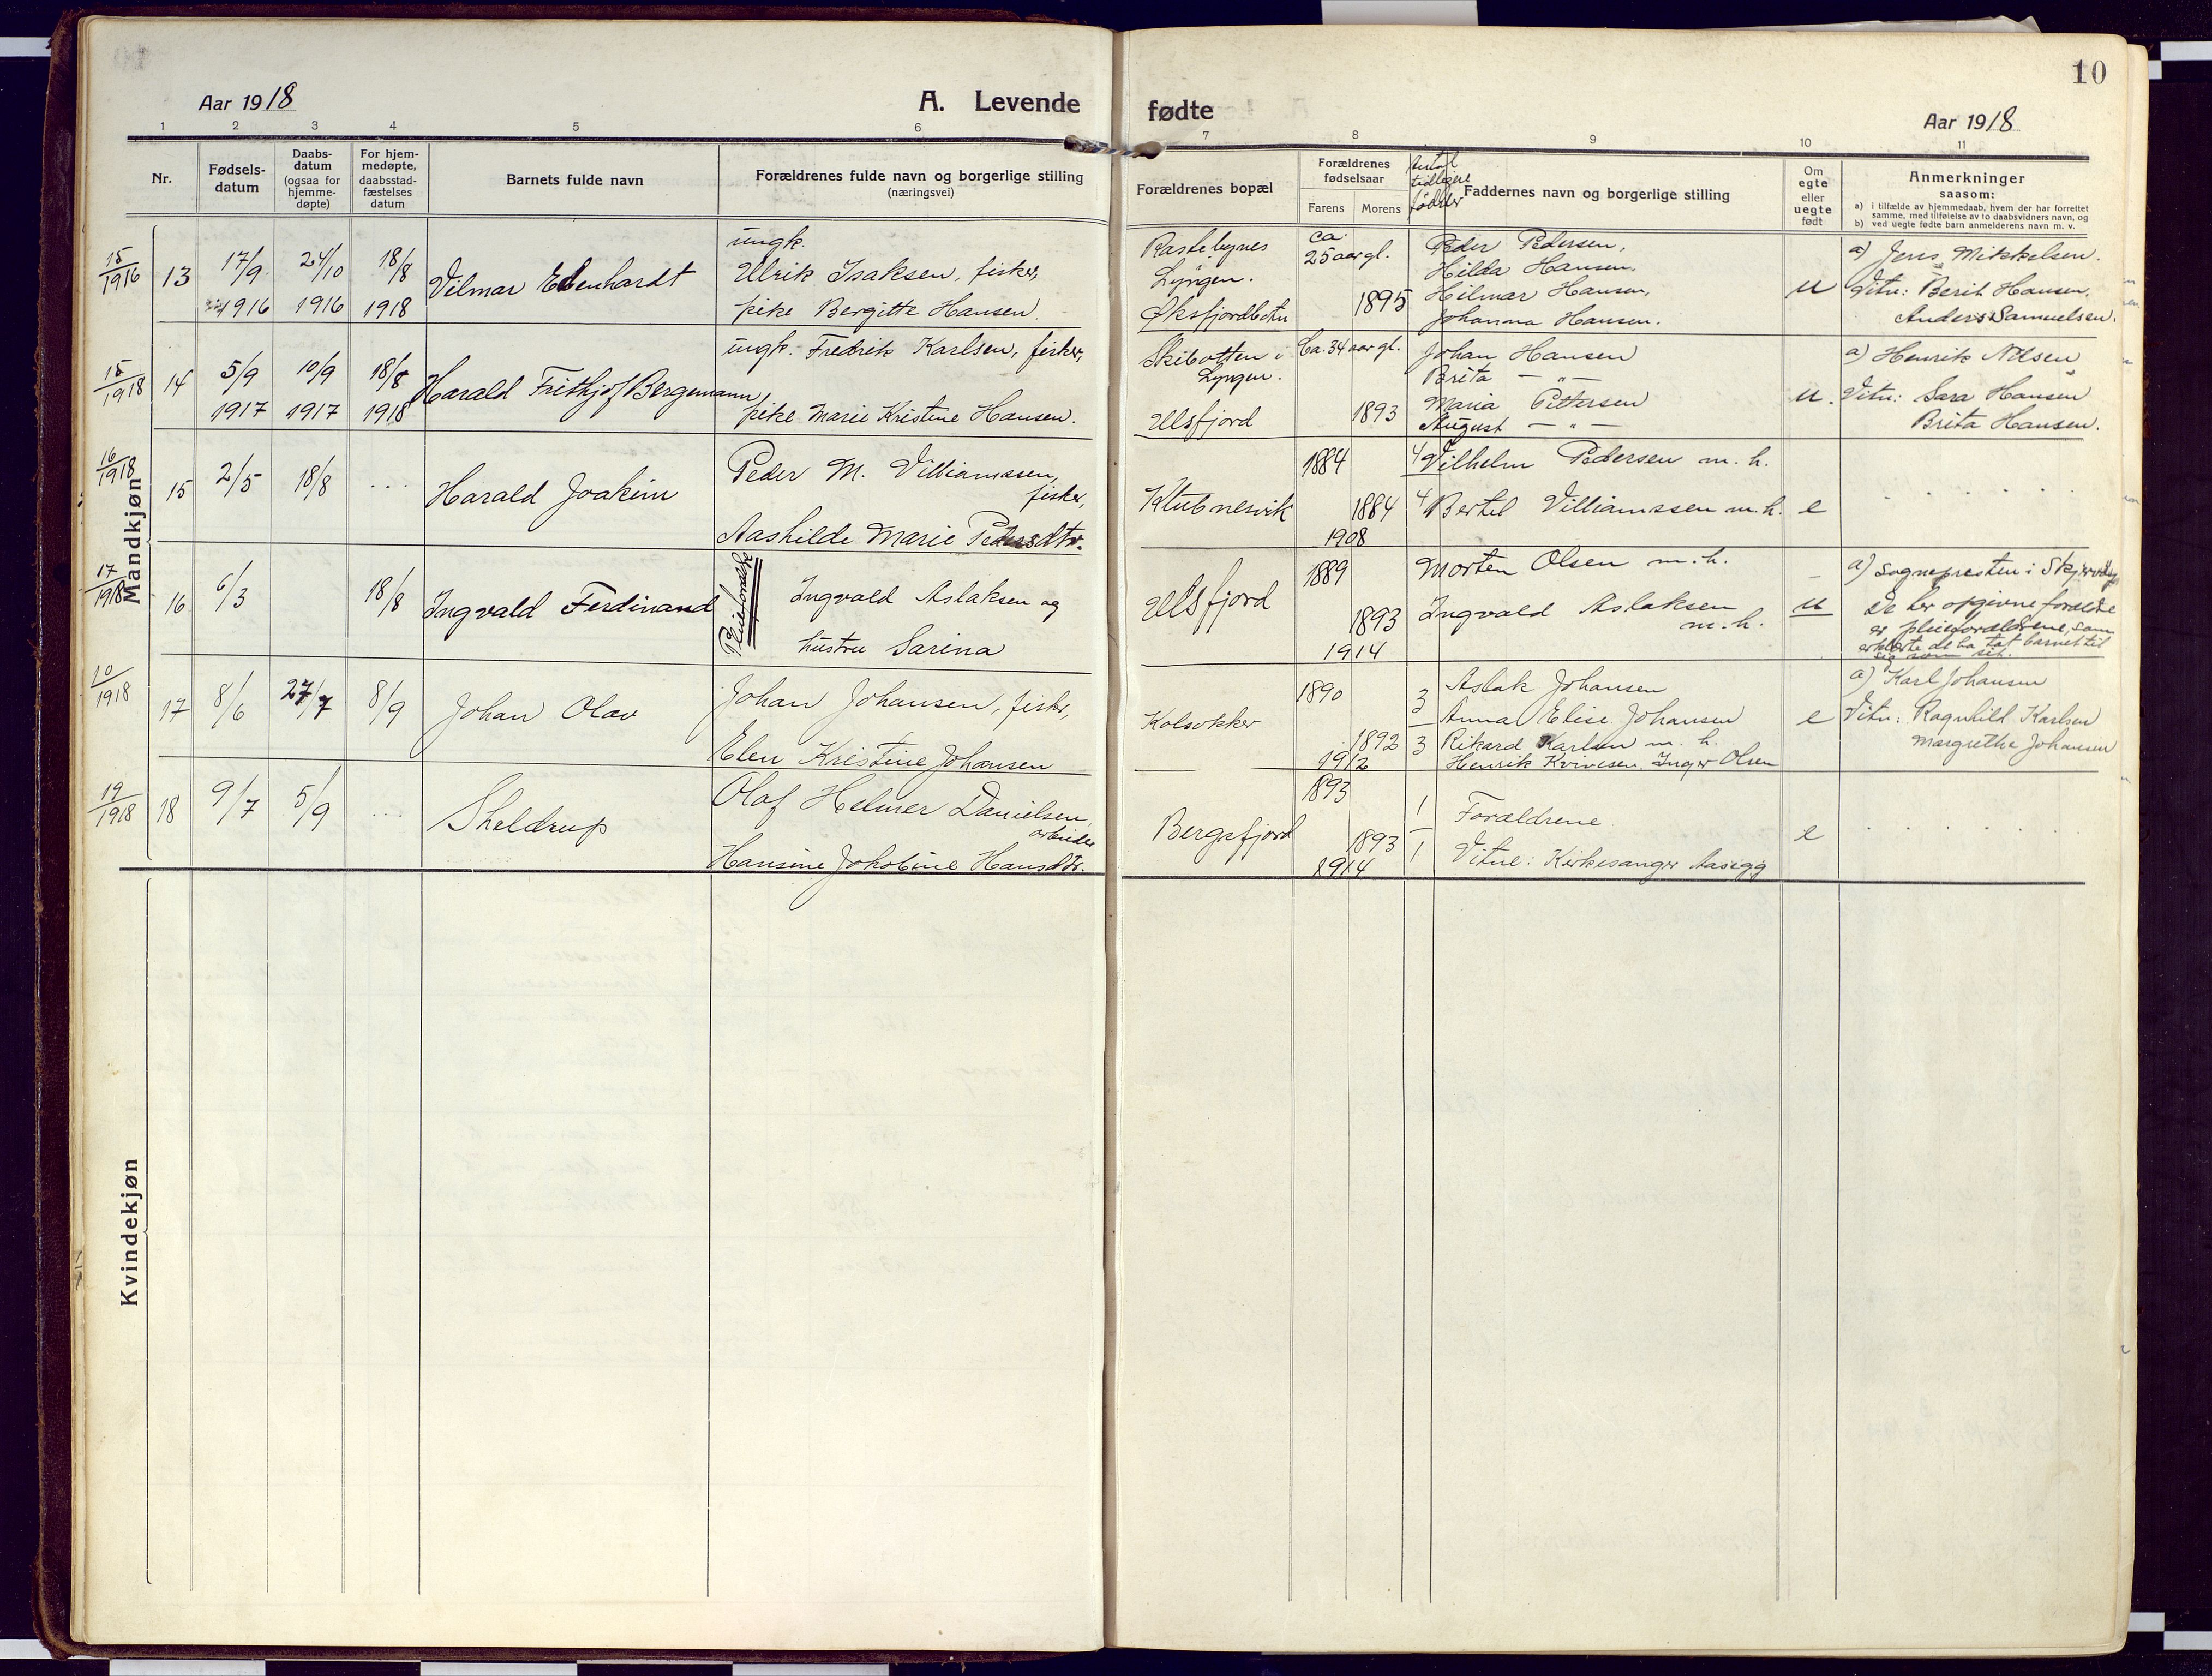 10
Aar 1918
A. Levende fødte
Aar 1918
1 2 3 4 5 6 7 8 9 10 11
Nr.
Fødsels-
datum
Daabs-
datum
(ogsaa for
hjemme-
døpte)
For hjem-
medøpte,
daabsstad-
fæstelses
datum
Barnets fulde navn
Forældrenes fulde navn og borgerlige stilling
(næringsvei)
Forældrenes bopæl
Forældrenes
fødselsaar
Farens Morens
Antal
tidligere
fødsler
Faddernes navn og borgerlige stilling
Om
egte
eller
uegte
født
Anmerkninger
saasom:
a) i tilfælde av hjemmedaab, hvem der har forrettet
samme, med tilføielse av to daabsvidners navn, og
b) ved uegte født barn anmelderens navn m. v.
Mandkjøn
15/1916 13
17/9 1916
24/10 1916
18/8 1918
Vilmar Edenhardt
ungk.
Ulrik Isaksen, fisker,
pike Bergitte Hansen.
Rastebynes
Lyngen.
Øksfjordbotn
ca.
25 aar gl.
1895
Peder Pedersen,
Hilda Hansen.
Hilmar Hansen,
Johanna Hansen.
u
a) Jens Mikkelsen.
Vitn: Berit Hansen.
Anders Samuelsen.
15/1918 14
5/9 1917
10/9 1917
18/8 1918
Harald Frithjof Bergemann
ungk. Fredrik Karlsen, fisker,
pike Marie Kristine Hansen.
Skibotten i
Lyngen.
Ulsfjord
Ca. 34 aar gl.
1893
Johan Hansen
Brita — " —
Maria Pettersen
August — " —
u.
a) Henrik Nilsen
Vitn: Sara Hansen
Brita Hansen.
16/1918 15
2/5
18/8
...
Harald Joakim
Peder M. Villiamssen,
fisker,
Aashilde Marie Pedersdtr.
Klubnesvik
1884
1884
1908
4
4
Vilhelm Pedersen m. h.
Bertel Villiamssen m. h.
e
17/1918 16
6/3
18/8
Ingvald Ferdinand
Pleieforældre
Ingvald Aslaksen og
hustru Sarina
Ulsfjord
1889
1893
1914
Morten Olsen m. h.
Ingvald Aslaksen
m. h.
u
a) Sognepresten i Skjervøy
De her opgivne forældre
er pleieforældrene, som
erklærte at ha tat barnet til
sig som sit.
10/1918 17
8/6
27/7
8/9
Johan Olav
Johan Johansen, fisker,
Elen Kristine Johansen
Kolsokker
1890
1892
1912
3
3
Aslak Johansen
Anna Elise Johansen
Rikard Karlsen m. h.
Henrik Kvivesen, Inger Olsen
e
a) Karl Johansen
Vitn: Ragnhild Karlsen
Margrethe Johansen
19/1918 18
9/7
5/9
...
Sheldrup
Olaf Helmer Danielsen,
arbeider
Hansine Jakobine Hansdtr.
Bergsfjord
1893
1893
1914
1
1
Forældrene.
Vitne: Kirkesanger Aasegg
e
Kvindekjøn